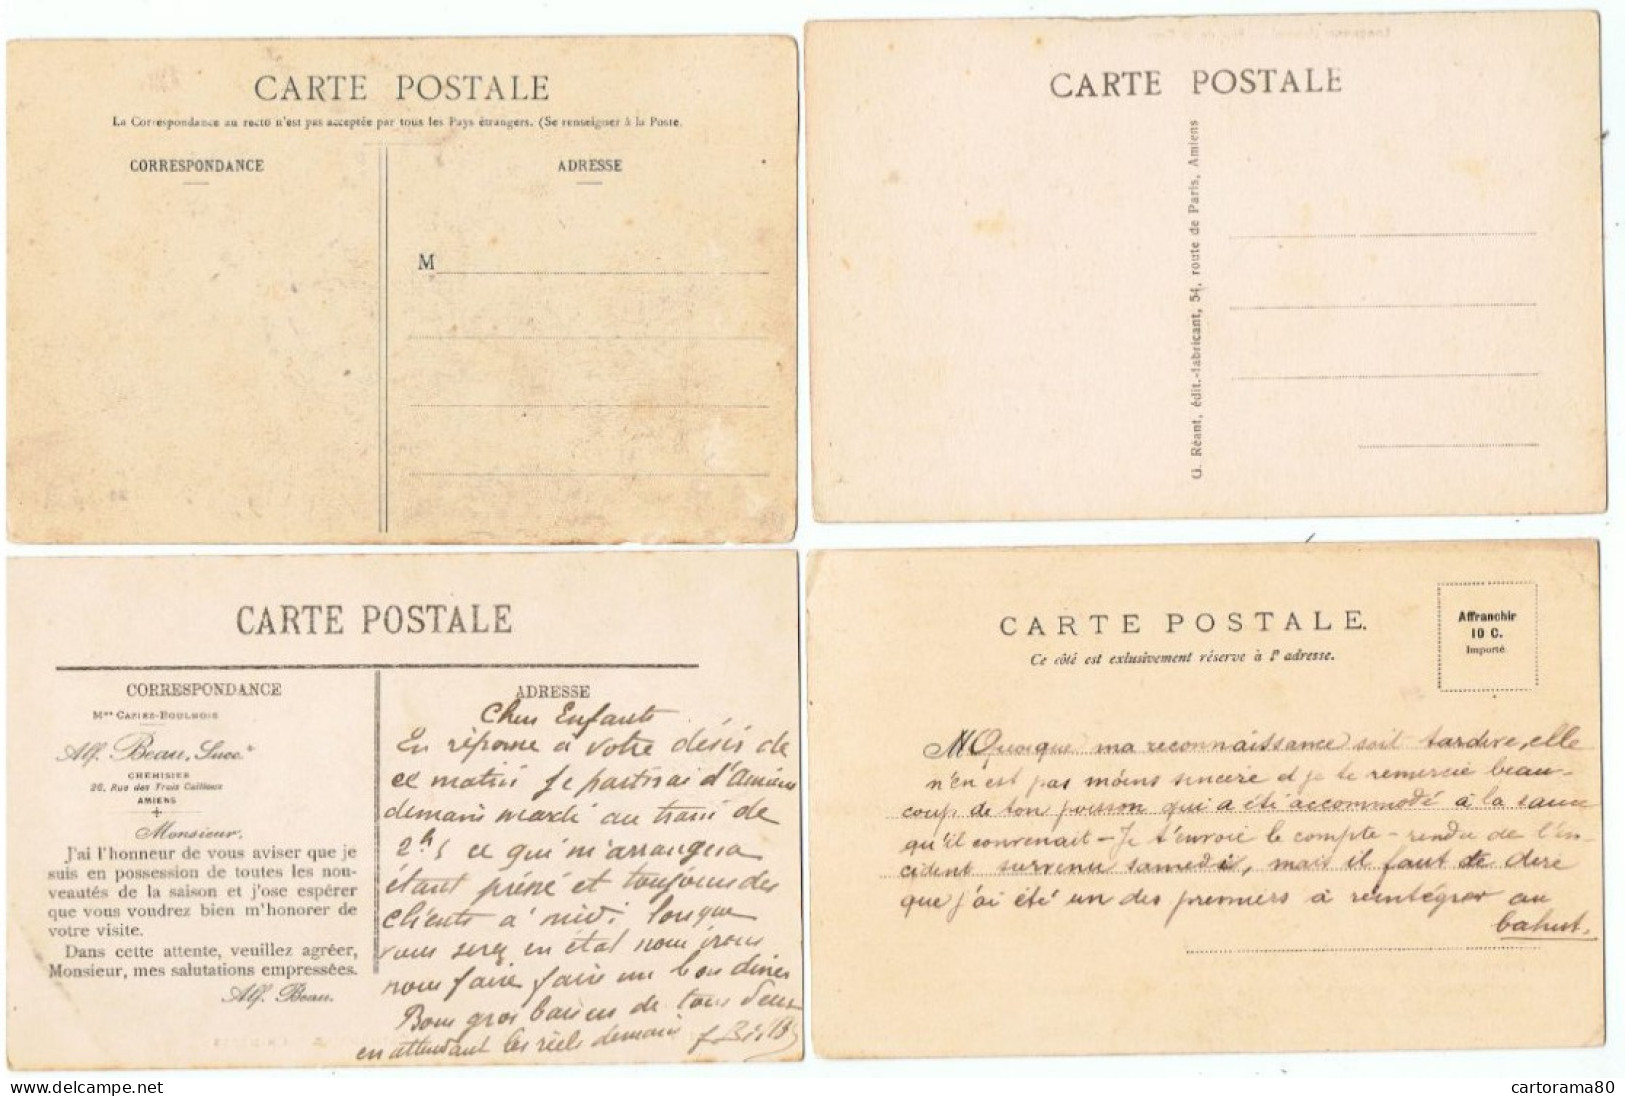 CARTE POSTALE
La Correspondance au recto n'est pas acceptée par tous les Pays étrangers. (Se renseigner à la Poste.
CORRESPONDANCE
ADRESSE
M
CARTE POSTALE
G. Réant, édit.-fabricant, 54, route de Paris, Amiens
CARTE POSTALE
CORRESPONDANCE
Alf. Beau, Succ.
CHEMISIER
26, Rue des Trois Cailloux
AMIENS
Monsieur,
J'ai l'honneur de vous aviser que je
suis en possession de toutes les nou-
veautés de la saison et j'ose espérer
que vous voudrez bien m'honorer de
votre visite.
Dans cette attente, veuillez agréer,
Monsieur, mes salutations empressées.
Alf. Beau.
ADRESSE
Chers Enfants
En réponse à votre désir de
ce matin je partirai d'Amiens
demain mardi au train de
2h 5 ce qui m'arrangera
étant pressé et toujours des
clients à midi lorsque
vous serez en état nous irons
nous faire faire un bon diner
Bons gros baisers de tous deux
en attendant les réels demain
CARTE POSTALE.
Ce côté est exlusivement réserve à l' adresse.
Affranchir
10 C.
Importé.
M Quoique ma reconnaissance soit tardive, elle
n'en est pas moins sincère et je te remercie beau-
coup de ton poisson qui a été accommodé à la sauce
qu'il convenait - Je t'envoie le compte-rendu de l'in-
cident survenu samedi, mais il faut te dire
que j'ai été un des premiers à réintégrer au
bahut.
cartorama80